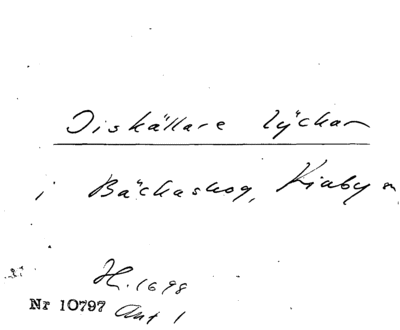 Diskällare lyckan
i Bäckaskog, Kiaby n
H. 1698
Nr 10797 Ant 1